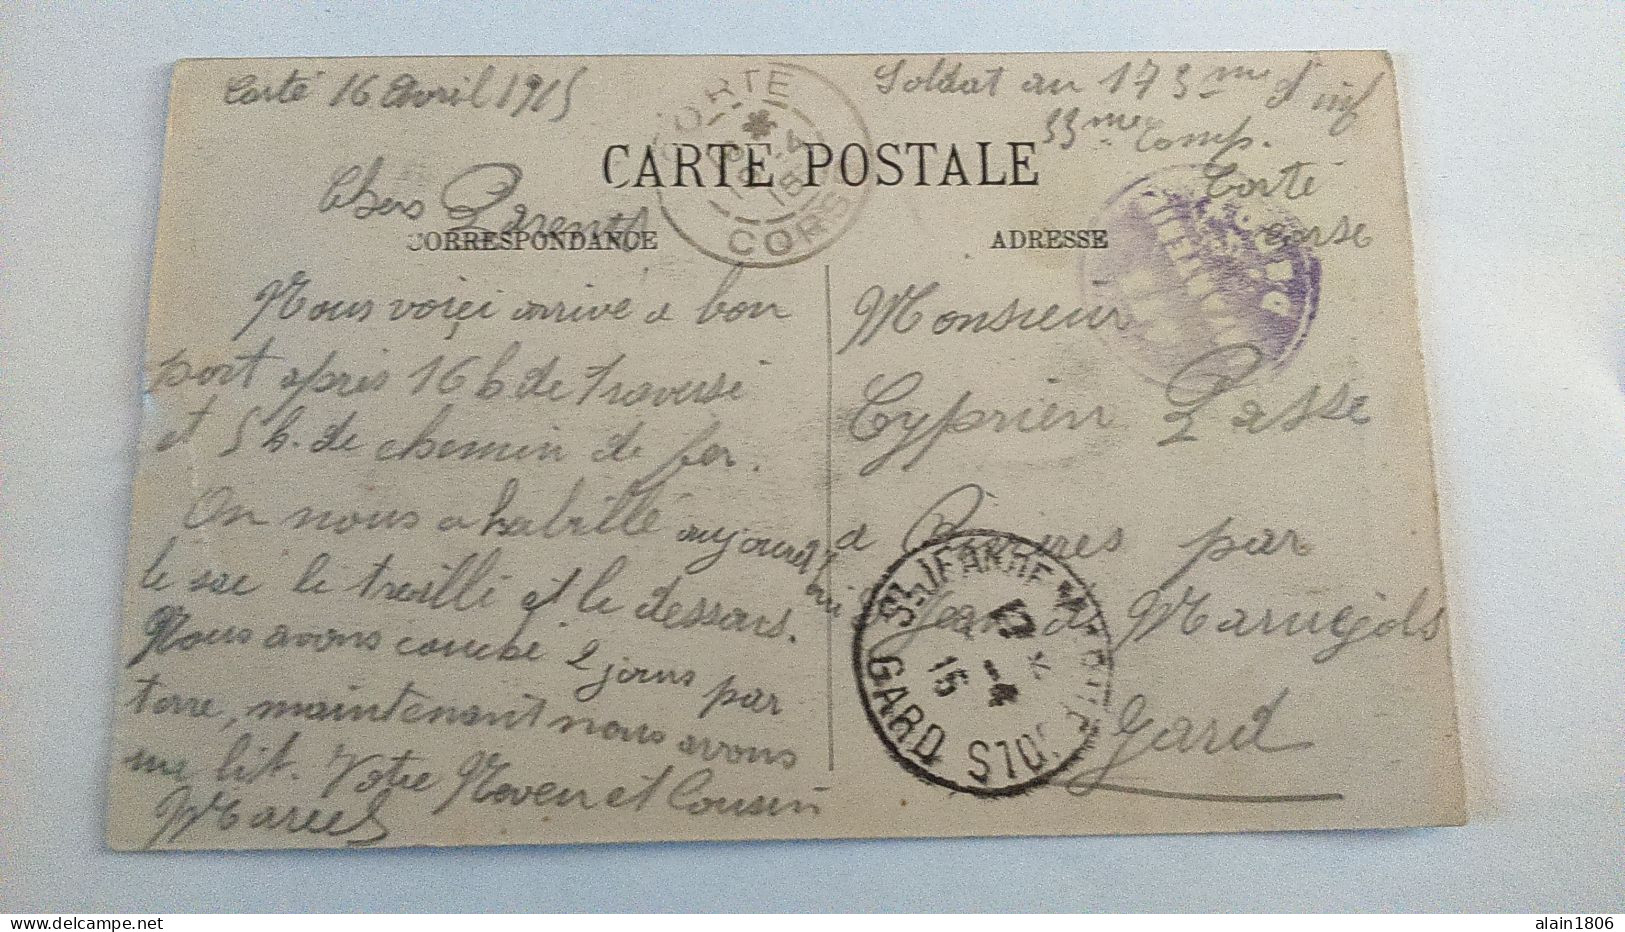 Corté 16 Avril 1915
Soldat au 173me d'inf
33me Comp.
Corté
Corse
CORTE
CORSE
CARTE POSTALE
Chers Parents
CORRESPONDANCE
ADRESSE
Nous voiçi arrive a bon
port après 16 h de traversé
et 5 h. de chemin de fer.
On nous a habillé aujourd'hui
le sac le treilli et le dessous.
Nous avons couché 2 jours par
terre, maintenant nous avons
un lit. Votre Neveu et Cousin
Marcel
Monsieur
Cyprien Passe
a par
St Jean de Maruejols
Gard
ST JEAN DE MARUEJOLS
17 -4
15
GARD
alain1806